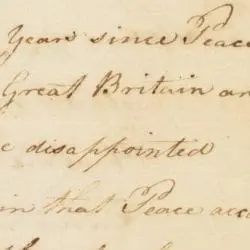 Year since Peace
Great Britain an
e disappointed
in that Peace acc